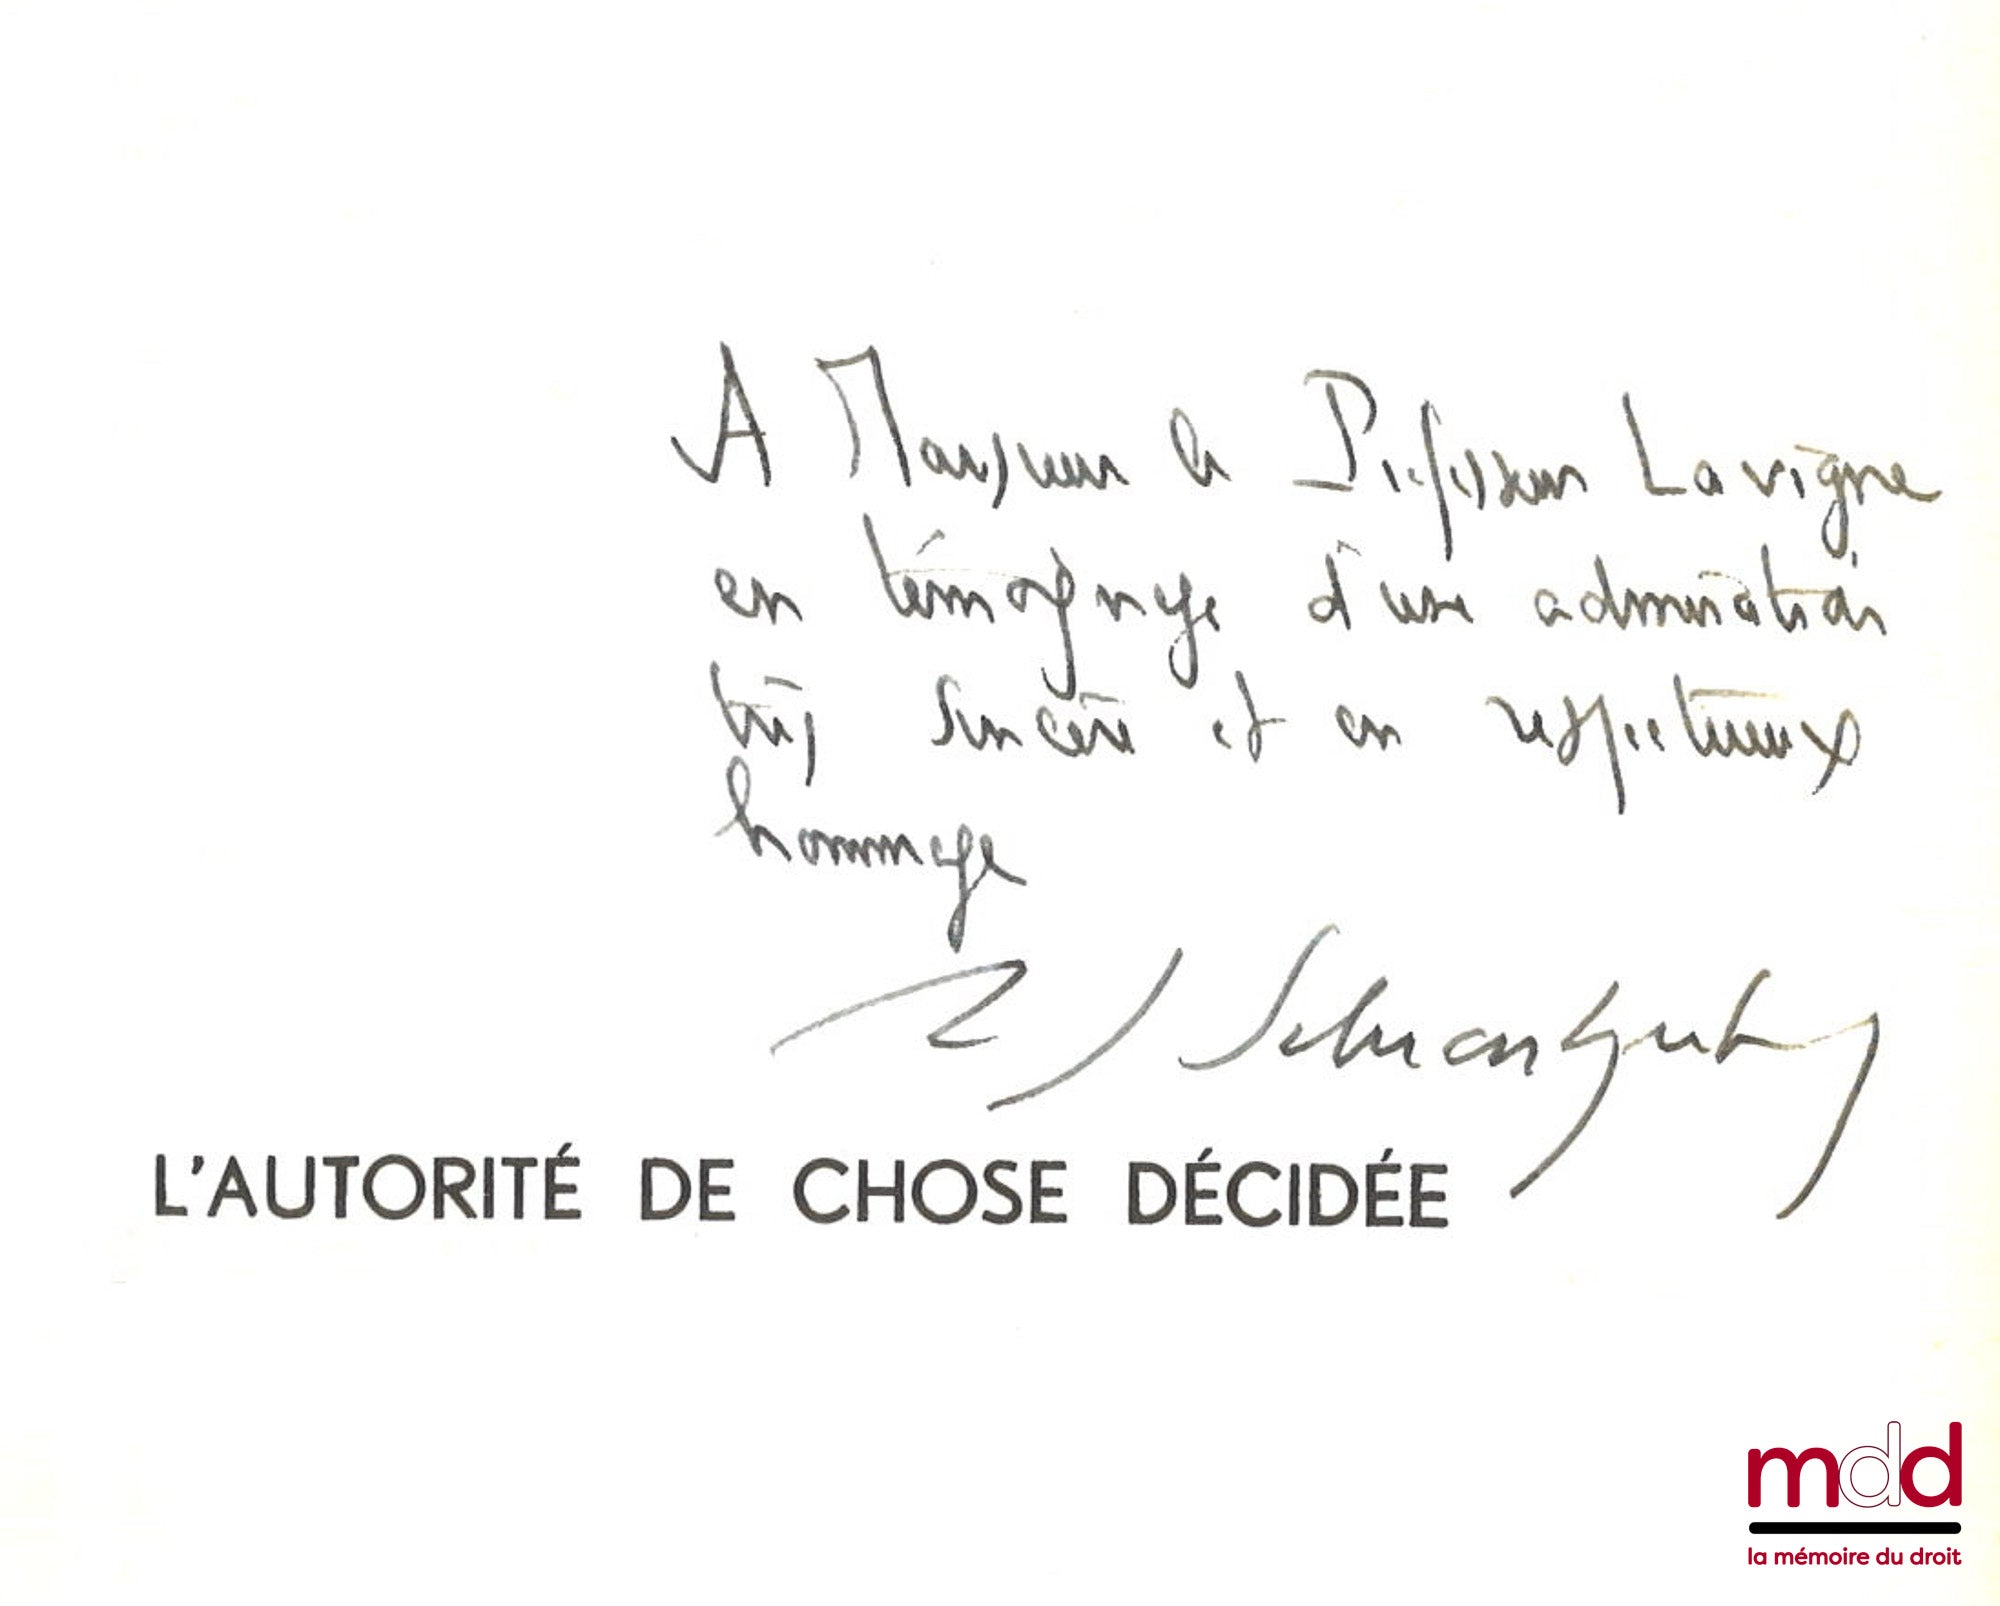 A Monsieur le Professeur Lavigne
en témoignage d'une admiration
très sincère et en respectueux
hommage
Schwartzenberg
L'AUTORITÉ DE CHOSE DÉCIDÉE
mdd
la mémoire du droit